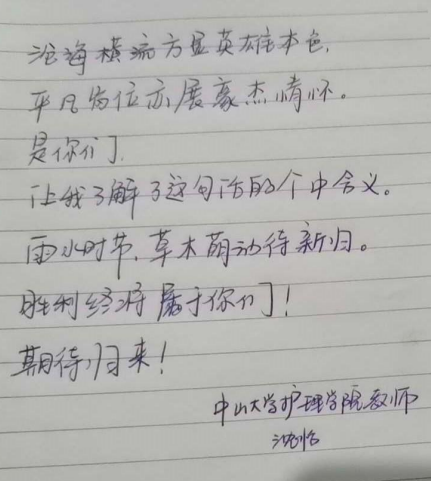 沧海横流方显英雄本色,
平凡岗位亦展豪杰情怀。
是你们,
让我了解了这句话的个中含义。
雨水时节,草木萌动待新归。
胜利终将属于你们!
期待归来!
中山大学护理学院教师
沈怡